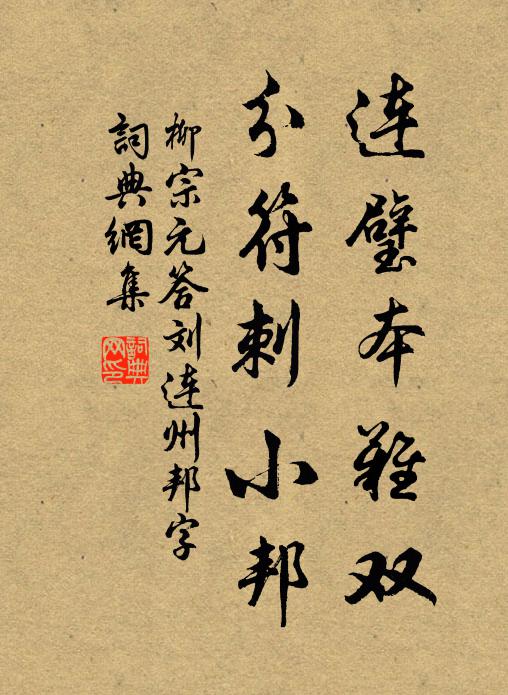 连璧本难双
分符刺小邦
柳宗元答刘连州邦字
詞典網集
詞典网印